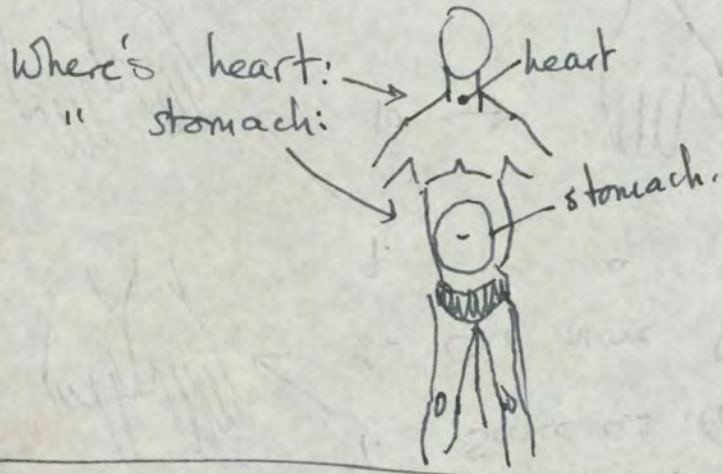 Where's heart:
" stomach:
heart
stomach.